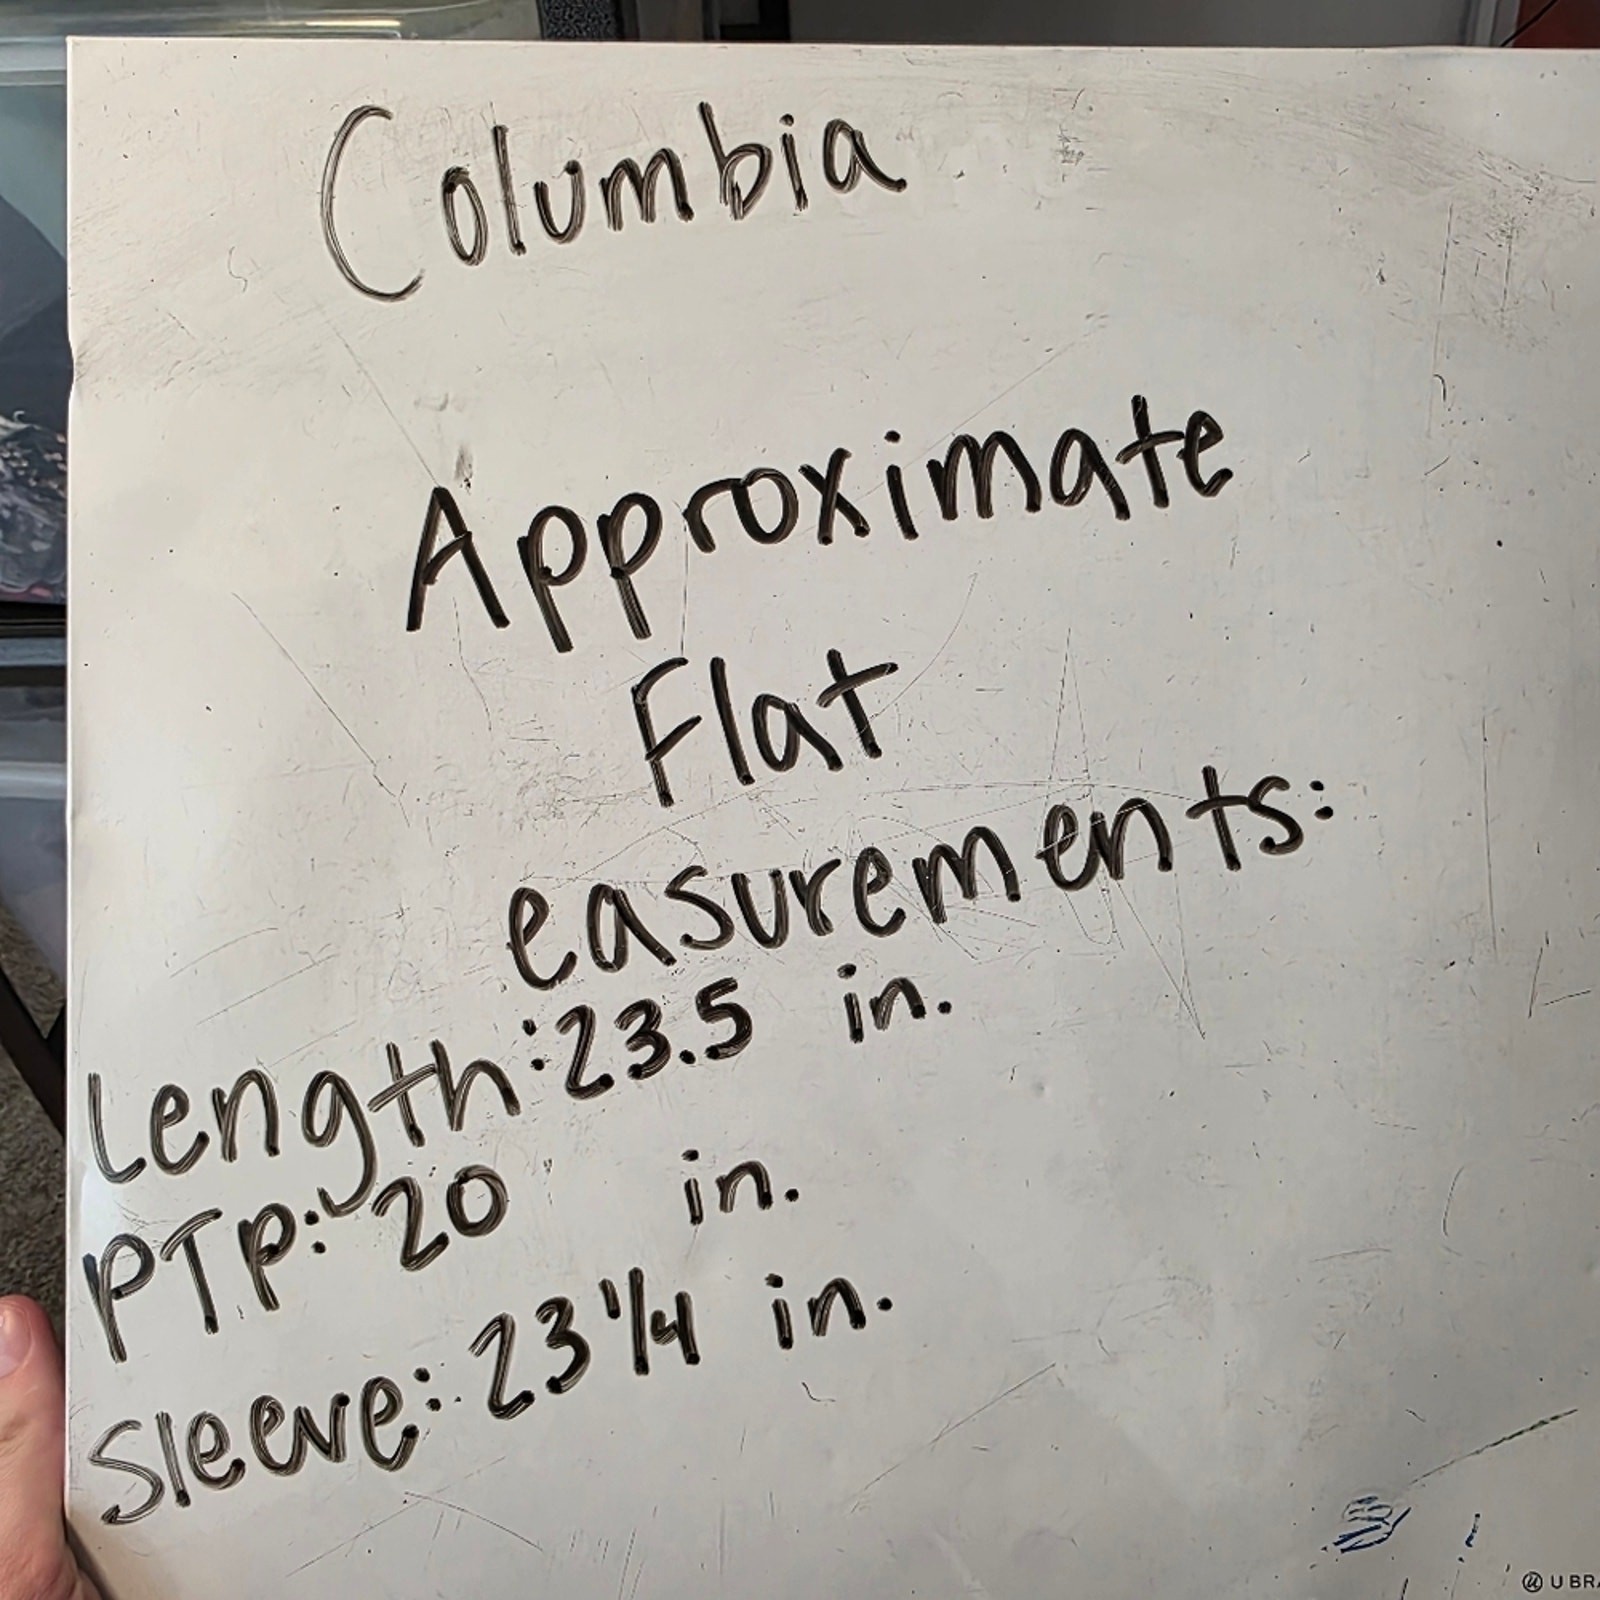 Columbia
Approximate
Flat
easurements:
Length: 23.5 in.
PTP: 20 in.
Sleeve: 23 1/4 in.
U BRA